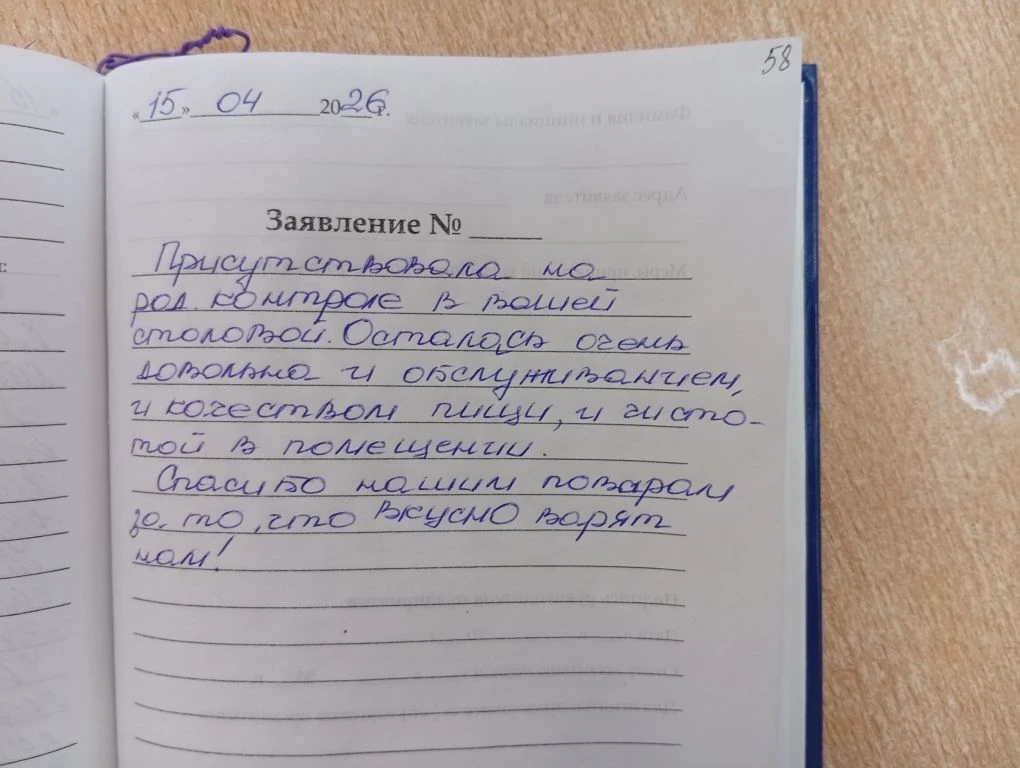 58
«15» 04 2026 г.
Заявление № ____
Присутствовала на
род. контроле в вашей
столовой. Осталась очень
довольна и обслуживанием,
и качеством пищи, и чисто-
той в помещении.
Спасибо нашим поварам
за то, что вкусно варят
нам!